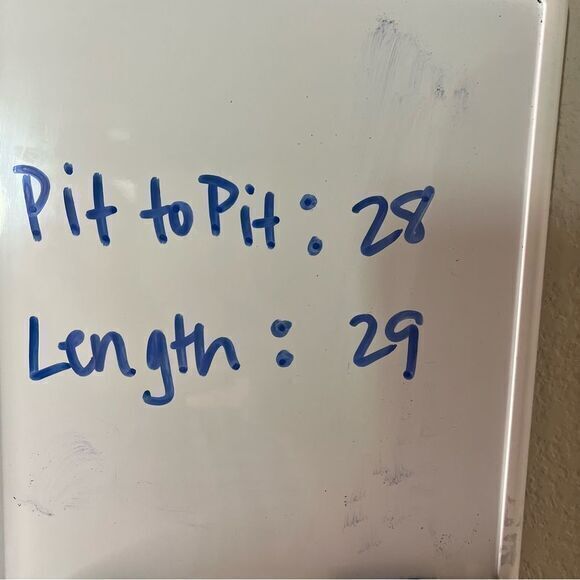 Pit to Pit: 28
Length: 29